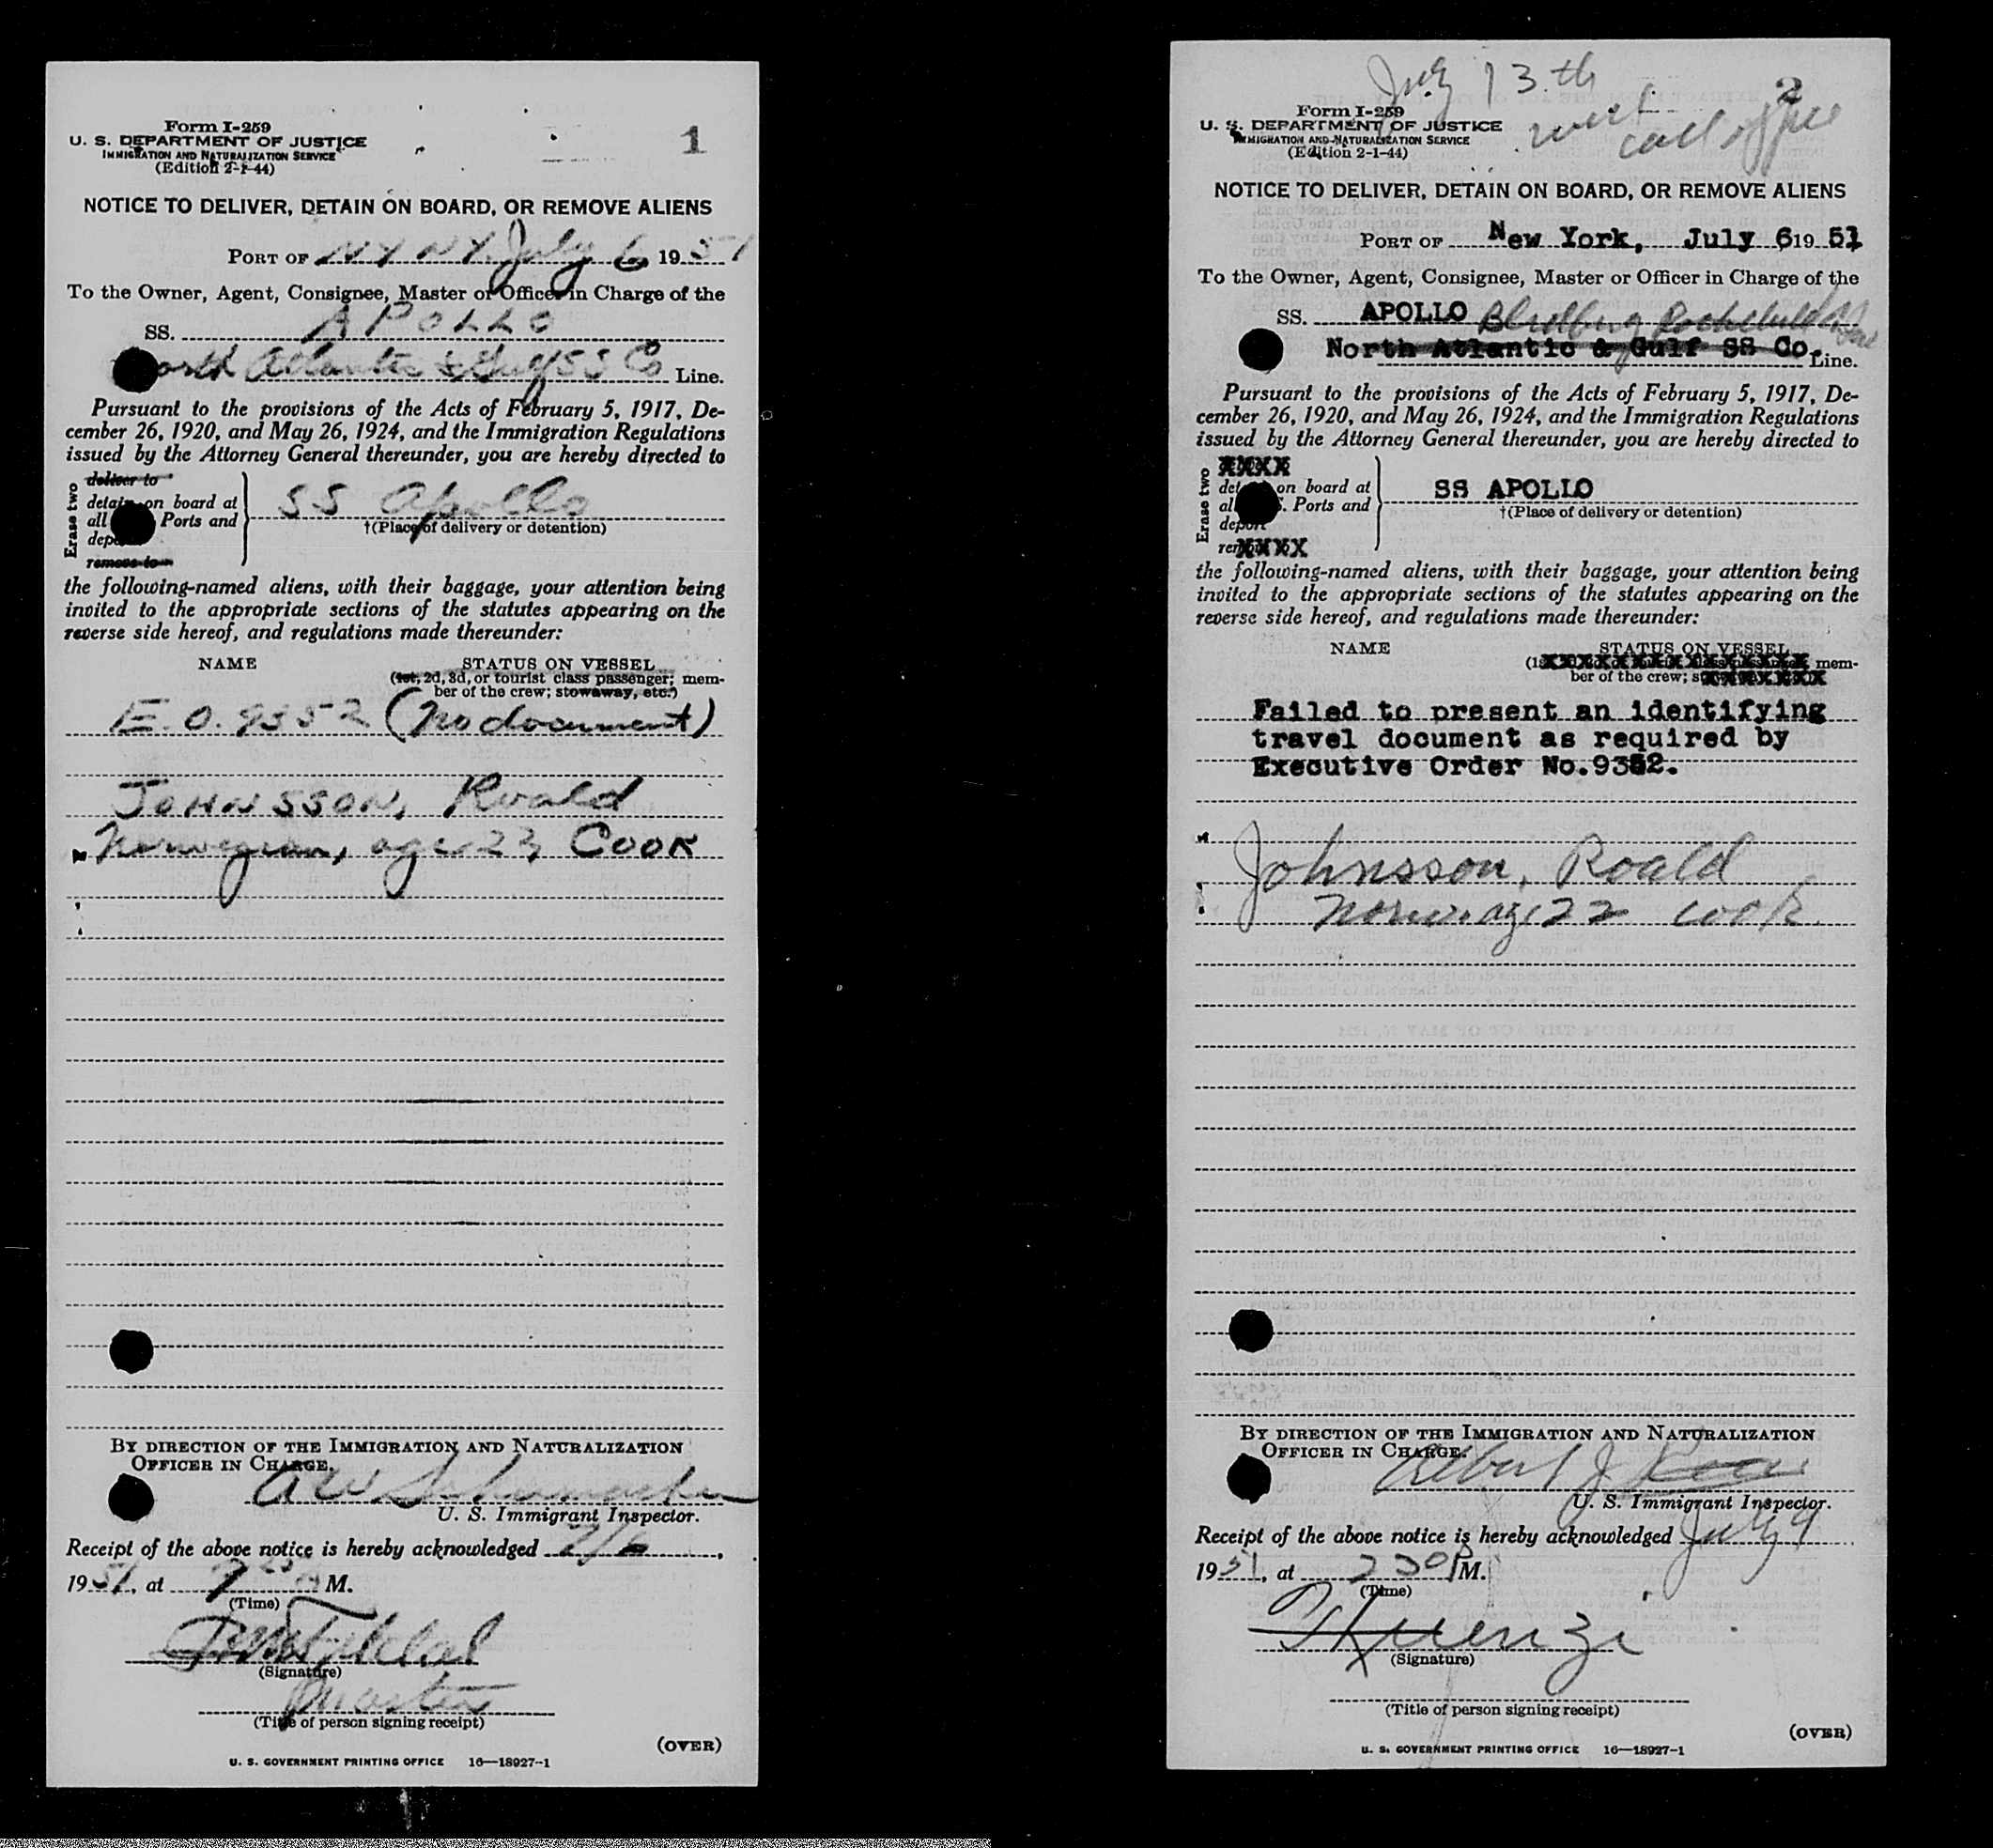 Form I-259
U. S. DEPARTMENT OF JUSTICE
IMMIGRATION AND NATURALIZATION SERVICE
(Edition 2-1-44)
1
NOTICE TO DELIVER, DETAIN ON BOARD, OR REMOVE ALIENS
PORT OF NY NY. July 6 1951
To the Owner, Agent, Consignee, Master or Officer in Charge of the
SS. APOLLO
North Atlantic & Gulf SS Co Line.
Pursuant to the provisions of the Acts of February 5, 1917, De-
cember 26, 1920, and May 26, 1924, and the Immigration Regulations
issued by the Attorney General thereunder, you are hereby directed to
Erase two
deliver to
detain on board at
all Ports and
remove to
SS Apollo
†(Place of delivery or detention)
the following-named aliens, with their baggage, your attention being
invited to the appropriate sections of the statutes appearing on the
reverse side hereof, and regulations made thereunder:
NAME STATUS ON VESSEL
(1st, 2d, 3d, or tourist class passenger; mem-
ber of the crew; stowaway, etc.)
E.O. 9352 (No document)
JOHNSSON, Roald
Norwegian, age 23, COOK
BY DIRECTION OF THE IMMIGRATION AND NATURALIZATION
OFFICER IN CHARGE.
A W Schumacher
U. S. Immigrant Inspector.
Receipt of the above notice is hereby acknowledged 7/6,
1951, at M.
(Time)
(Signature)
Master
(Title of person signing receipt)
(OVER)
U. S. GOVERNMENT PRINTING OFFICE 16—18927-1
July 13th
2
will call office
Form I-259
U. S. DEPARTMENT OF JUSTICE
IMMIGRATION AND NATURALIZATION SERVICE
(Edition 2-1-44)
NOTICE TO DELIVER, DETAIN ON BOARD, OR REMOVE ALIENS
PORT OF New York, July 6 1951
To the Owner, Agent, Consignee, Master or Officer in Charge of the
SS. APOLLO
North Atlantic & Gulf SS Co. Line.
Pursuant to the provisions of the Acts of February 5, 1917, De-
cember 26, 1920, and May 26, 1924, and the Immigration Regulations
issued by the Attorney General thereunder, you are hereby directed to
Erase two
XXXX
on board at
Ports and
deport
XXXX
SS APOLLO
†(Place of delivery or detention)
the following-named aliens, with their baggage, your attention being
invited to the appropriate sections of the statutes appearing on the
reverse side hereof, and regulations made thereunder:
NAME STATUS ON VESSEL
mem-
ber of the crew;
Failed to present an identifying
travel document as required by
Executive Order No.9352.
Johnsson, Roald
Norw. age 22 cook
BY DIRECTION OF THE IMMIGRATION AND NATURALIZATION
OFFICER IN CHARGE.
Albert J
U. S. Immigrant Inspector.
Receipt of the above notice is hereby acknowledged July 9
1951, at 230P M.
(Time)
Kuenzi
(Signature)
(Title of person signing receipt)
(OVER)
U. S. GOVERNMENT PRINTING OFFICE 16—18927-1